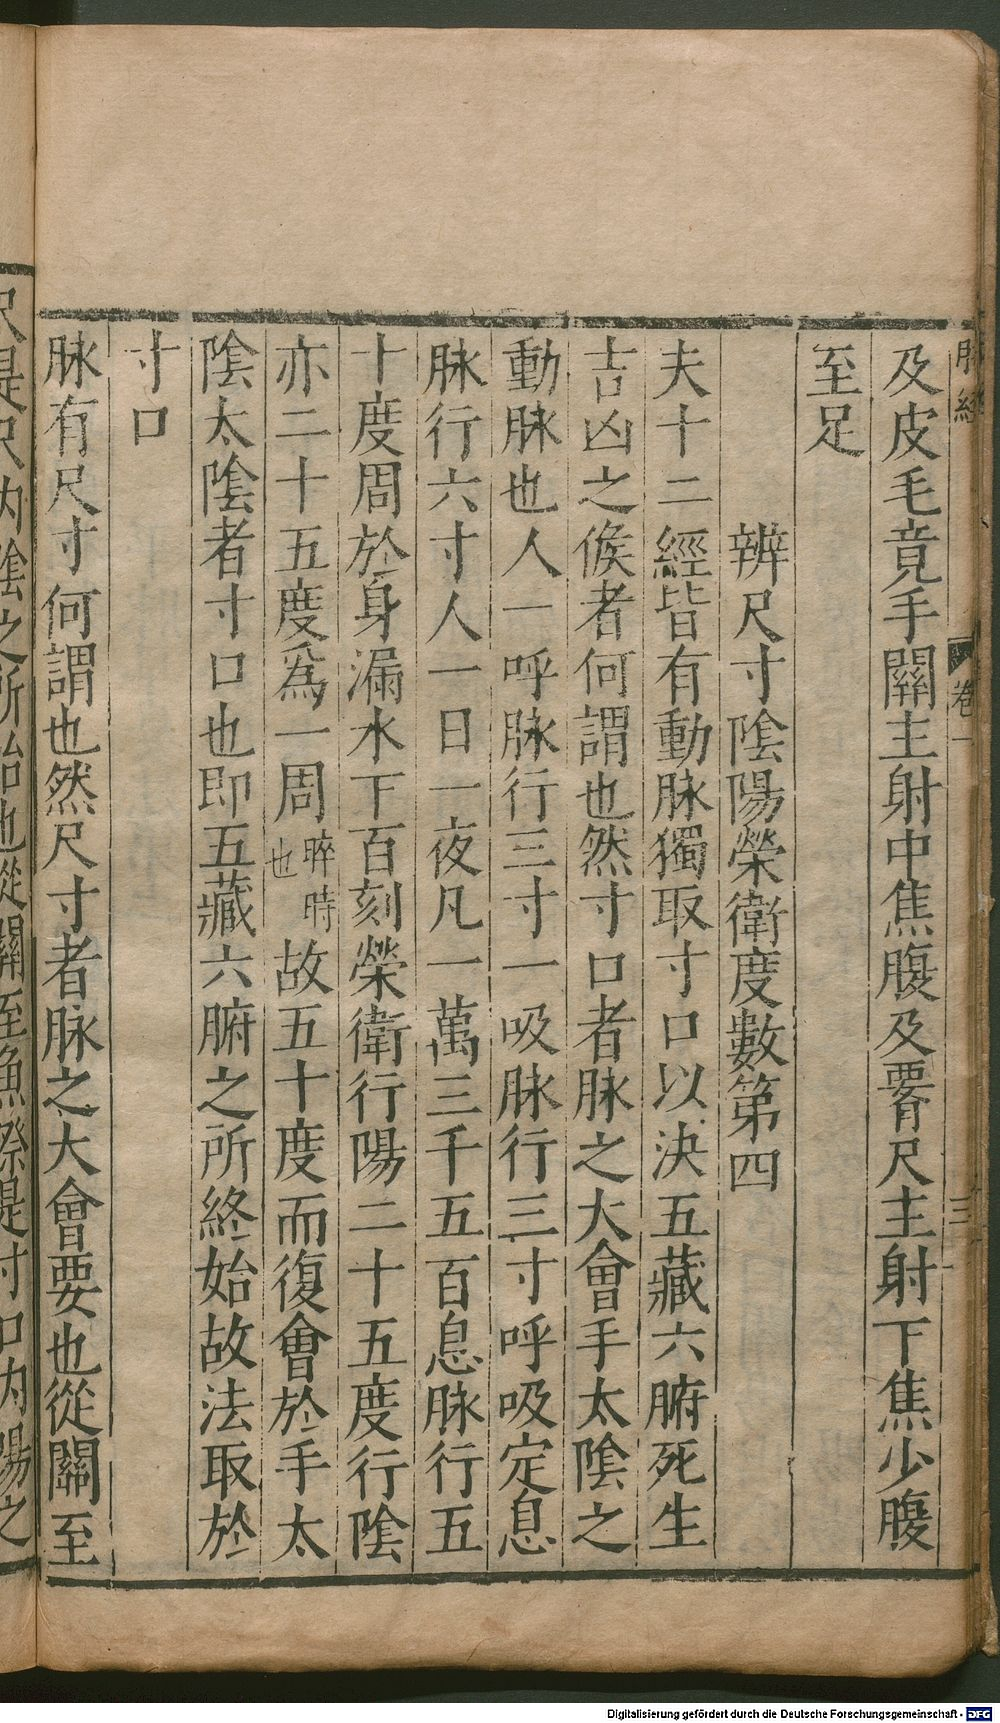 脉經 卷一 三
及皮毛竟手關主射中焦腹及署尺主射下焦少腹
至足
辨尺寸陰陽榮衛度數第四
夫十二經皆有動脉獨取寸口以决五藏六腑死生
吉凶之候者何謂也然寸口者脉之大會手太陰之
動脉也人一呼脉行三寸一吸脉行三寸呼吸定息
脉行六寸人一日一夜凡一萬三千五百息脉行五
十度周於身漏水下百刻榮衛行陽二十五度行陰
亦二十五度爲一周晬時也故五十度而復會於手太
陰太陰者寸口也即五藏六腑之所終始故法取於
寸口
脉有尺寸何謂也然尺寸者脉之大會要也從關至
尺是尺内陰之所治也從關至魚際是寸口内陽之
Digitalisierung gefördert durch die Deutsche Forschungsgemeinschaft - DFG